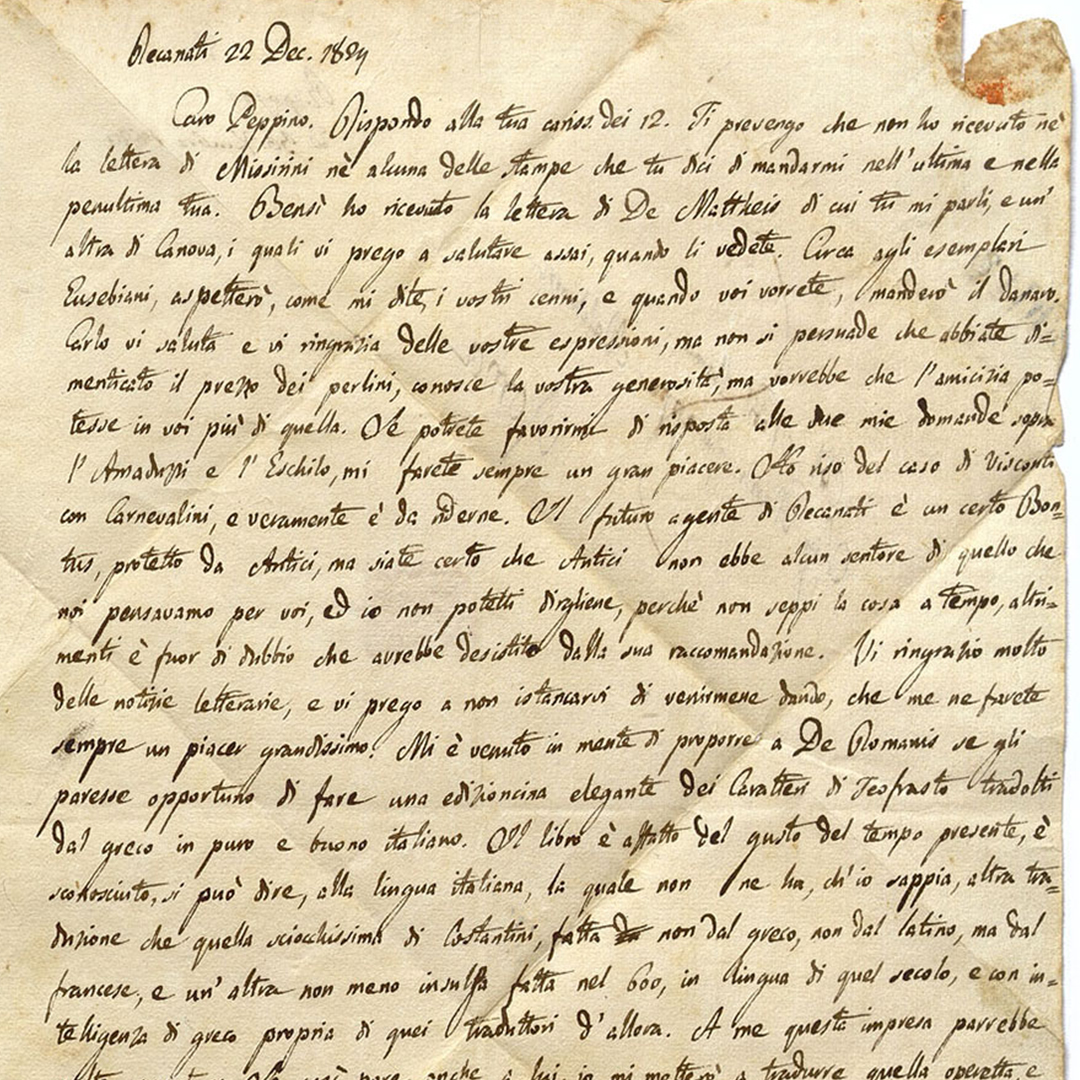 Recanati 22 Dec. 1824
Caro Peppino. Rispondo alla tua cariss. dei 12. Ti prevengo che non ho ricevuto nè
la lettera di Missirini nè alcuna delle stampe che tu dici di mandarmi nell'ultima e nella
penultima tua. Bensì ho ricevuto la lettera di De Mattheis di cui tu mi parli, e un'
altra di Canova, i quali vi prego a salutare assai, quando li vedete. Circa agli esemplari
Eusebiani, aspetterò, come mi dite, i vostri cenni, e quando voi vorrete, manderò il danaro.
Carlo vi saluta e vi ringrazia delle vostre espressioni, ma non si persuade che abbiate di=
menticato il prezzo dei perlini, conosce la vostra generosità, ma vorrebbe che l'amicizia po=
tesse in voi più di quella. Se potrete favorirmi di risposta alle due mie domande sopra
l'Amaduzzi e l'Eschilo, mi farete sempre un gran piacere. Ho riso del caso di Visconti
con Carnevalini, e veramente è da riderne. Il futuro agente di Recanati è un certo Bon=
tus, protetto da Antici, ma siate certo che Antici non ebbe alcun sentore di quello che
noi pensavamo per voi, ed io non potetti dirgliene, perchè non seppi la cosa a tempo, altri=
menti è fuor di dubbio che avrebbe desistito dalla sua raccomandazione. Vi ringrazio molto
delle notizie letterarie, e vi prego a non istancarvi di venirmene dando, che me ne farete
sempre un piacer grandissimo. Mi è venuto in mente di proporre a De Romanis se gli
paresse opportuno di fare una edizioncina elegante dei Caratteri di Teofrasto tradotti
dal greco in puro e buono italiano. Il libro è affatto del gusto del tempo presente, è
sconosciuto, si può dire, alla lingua italiana, la quale non ne ha, ch'io sappia, altra tra=
duzione che quella sciocchissima di Costantini, fatta non dal greco, non dal latino, ma dal
francese, e un'altra non meno insulsa fatta nel 600, in lingua di quel secolo, e con in=
telligenza di greco propria di quei traduttori d'allora. A me questa impresa parrebbe
pare, anche a lui, io mi metterò a tradurre quella operetta e